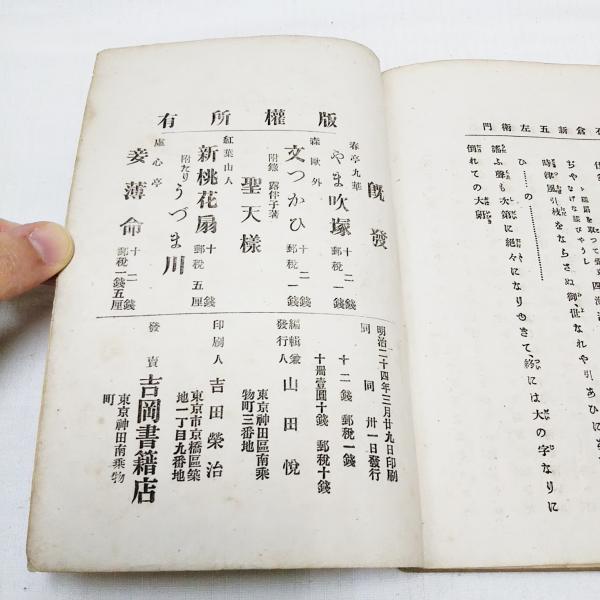 石倉新五左衛門
時津風引枝をならさぬ御世なれや引あひに
謡ふ聲も次第に絶々になりゆきて、終には大の字なりに
ひ……の…………
倒れての大鼾
版權所有
既發
春亭九華
やま吹塚
十二錢
郵稅一錢
森鷗外
文つかひ
十二錢
郵稅一錢
附錄 露伴子著
聖天樣
紅葉山人
新桃花扇
附たり うづま川
十錢
郵稅五厘
虛心亭
妾薄命
十二錢
郵稅一錢五厘
明治二十四年三月廿九日印刷
同 同 卅一日發行
十二錢 郵稅一錢
十冊壹圓十錢 郵稅十錢
編輯兼發行人 山田悅
東京神田區南乘物町三番地
印刷人 吉田榮治
東京市京橋區築地一丁目九番地
發賣 吉岡書籍店
東京神田南乘物町